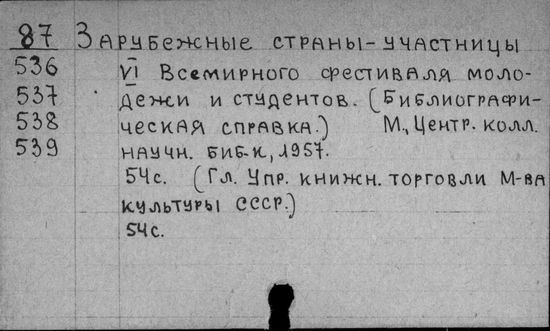 87 Зарубежные страны-участницы
536 VI Всемирного фестиваля моло-
537 дежи и студентов. (Библиографи-
538 ческая справка.) М., Центр. колл.
539 научн. биб-к, 1957.
54с. (Гл. Упр. книжн. торговли М-ва
культуры СССР.)
54с.